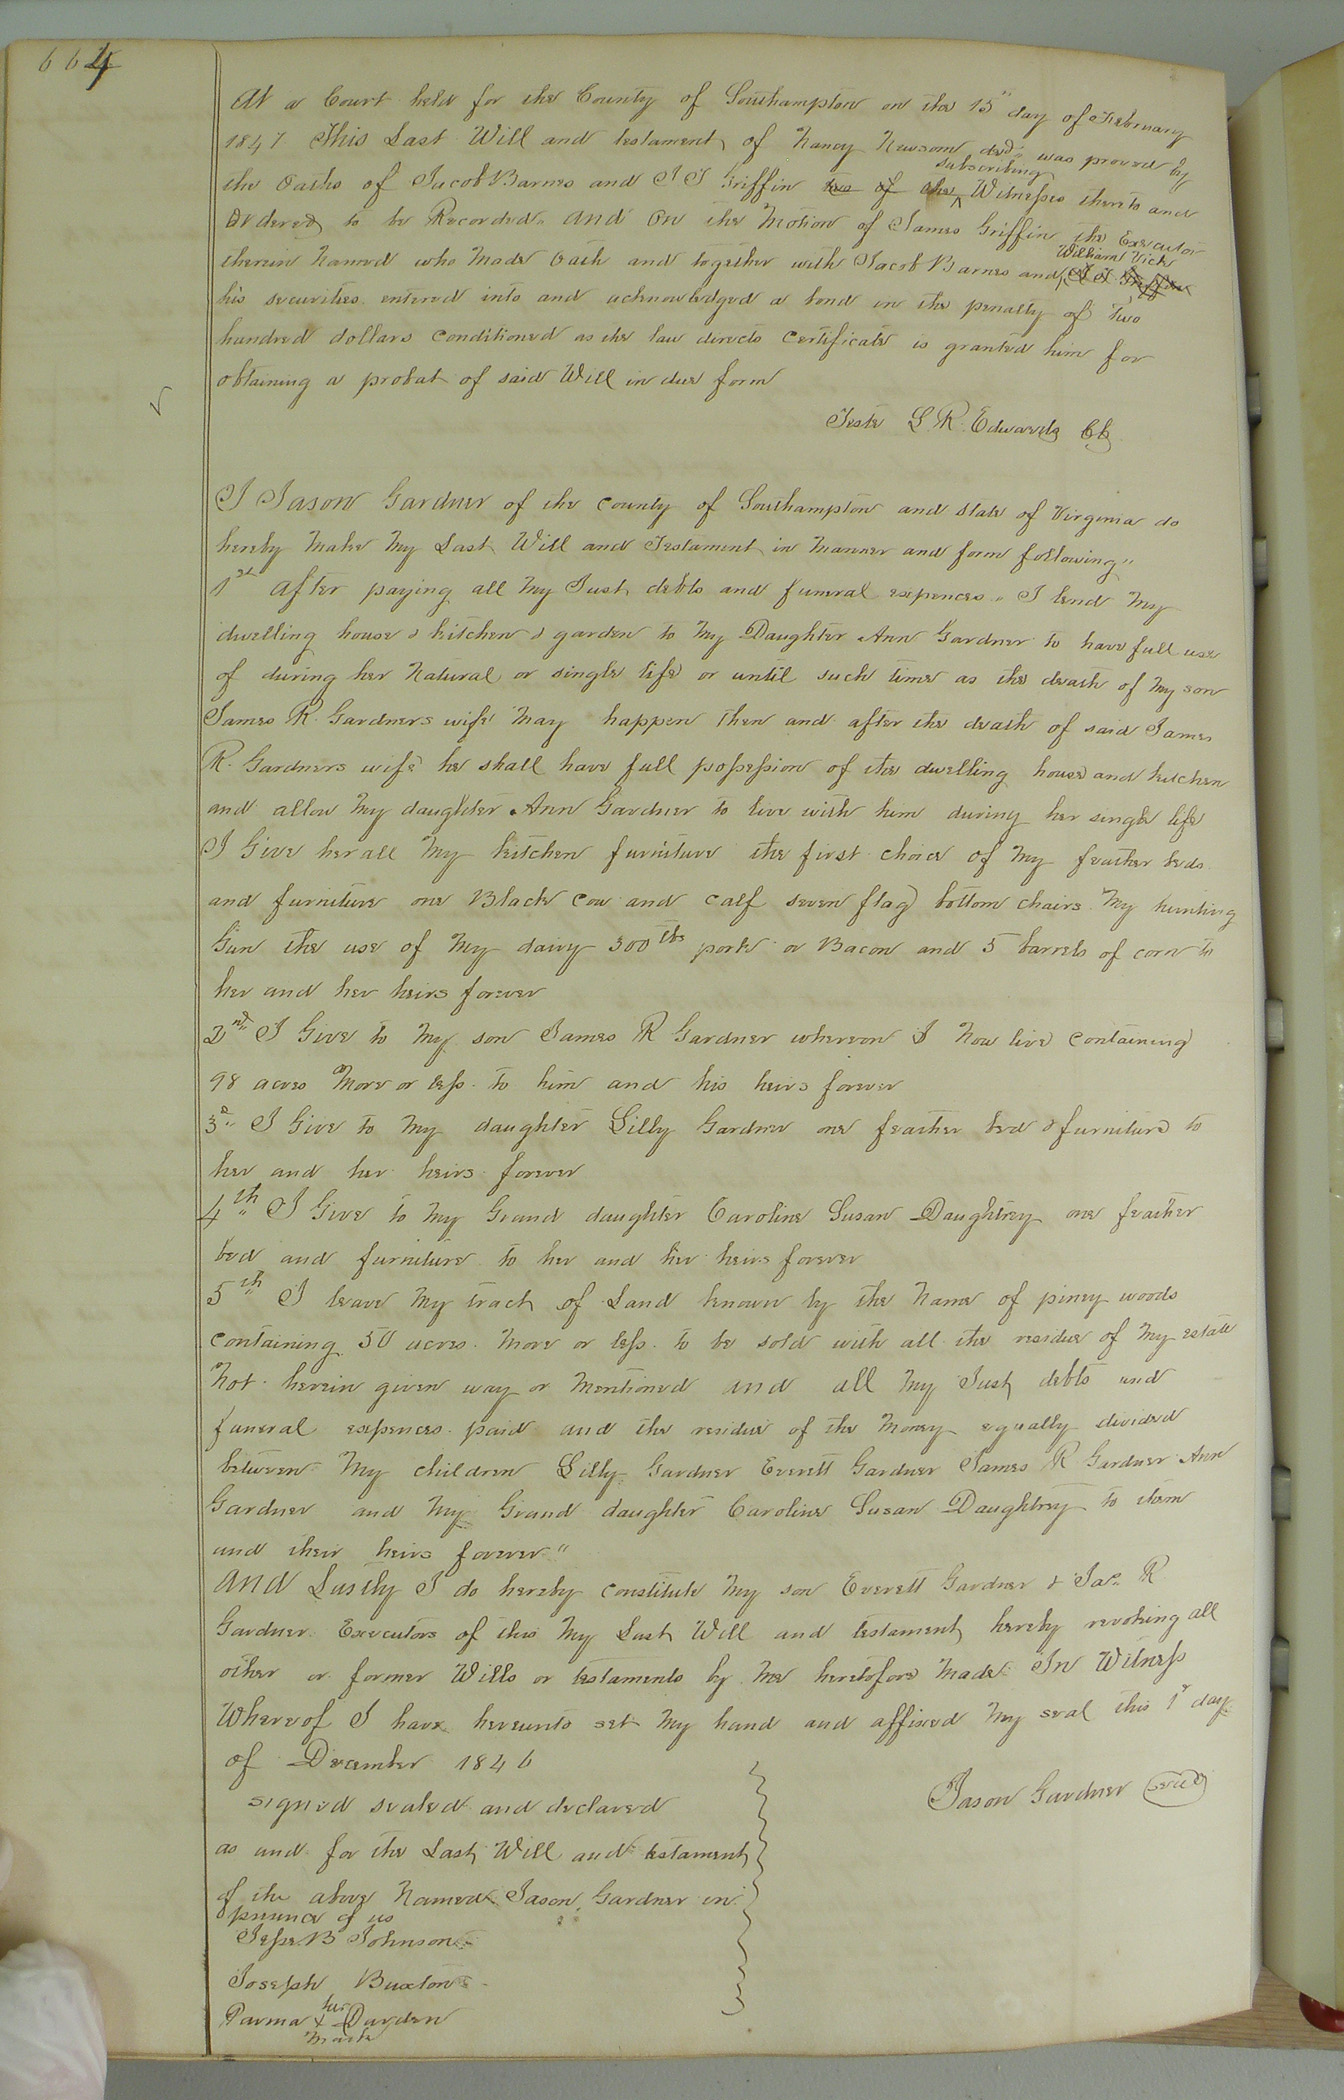 664
At a Court held for the County of Southampton on the 15" day of February
1847 This Last Will and testament of Nancy Newsom decd was proved by
the Oaths of Jacob Barnes and J J Griffin two of the subscribing Witnesses thereto and
Ordered to be Recorded. And on the Motion of James Griffin the Executor
therein Named who Made Oath and together with Jacob Barnes and William Vick J J Griffin
his securities entered into and acknowledged a bond in the penalty of Two
hundred dollars Conditioned as the law directs Certificate is granted him for
obtaining a probat of said Will in due form
Teste L R Edwards CC
I Jason Gardner of the County of Southampton and state of Virginia do
hereby Make My Last Will and Testament in Manner and form following"
1st After paying all My Just debts and funeral expences. I lend My
dwelling house & kitchen & garden to My Daughter Ann Gardner to have full use
of during her Natural or single life or until such time as the death of My son
James R. Gardners wife May happen then and after the death of said James
R. Gardners wife he shall have full possession of the dwelling house and kitchen
and allow My daughter Ann Gardner to live with him during her single life
I Give her all My kitchen furniture the first choice of My feather beds
and furniture one Black Cow and Calf seven flag bottom chairs My hunting
Gun the use of My dairy 300 lbs pork or Bacon and 5 barrels of corn to
her and her heirs forever
2nd I Give to My son James R Gardner whereon I Now live Containing
98 acres More or less to him and his heirs forever
3d I Give to My daughter Lilly Gardner one feather bed & furniture to
her and her heirs forever
4th I Give to My Grand daughter Caroline Susan Daughtrey one feather
bed and furniture to her and her heirs forever
5th I leave My tract of Land known by the Name of piney woods
Containing 50 acres More or less to be sold with all the residue of My estate
Not herein given way or Mentioned and all My Just debts and
funeral expences paid and the residue of the Money equally divided
between My children Lilly Gardner Everett Gardner James R Gardner Ann
Gardner and My Grand daughter Caroline Susan Daughtrey to them
and their heirs forever"
And Lastly I do hereby constitute My son Everett Gardner & Jas R
Gardner Executors of this My Last Will and testament hereby revoking all
other or former Wills or testaments by Me heretofore Made In Witness
Whereof I have hereunto set My hand and affixed My seal this 1st day
of December 1846
Jason Gardner seal
signed sealed and declared
as and for the Last Will and testament
of the above Named Jason Gardner in
presence of us
Jesse B Johnson
Joseph Buxton
Parma her X mark Durden